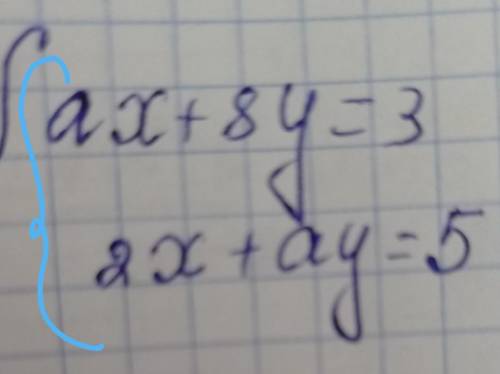 ax+8y=3
2x+ay=5